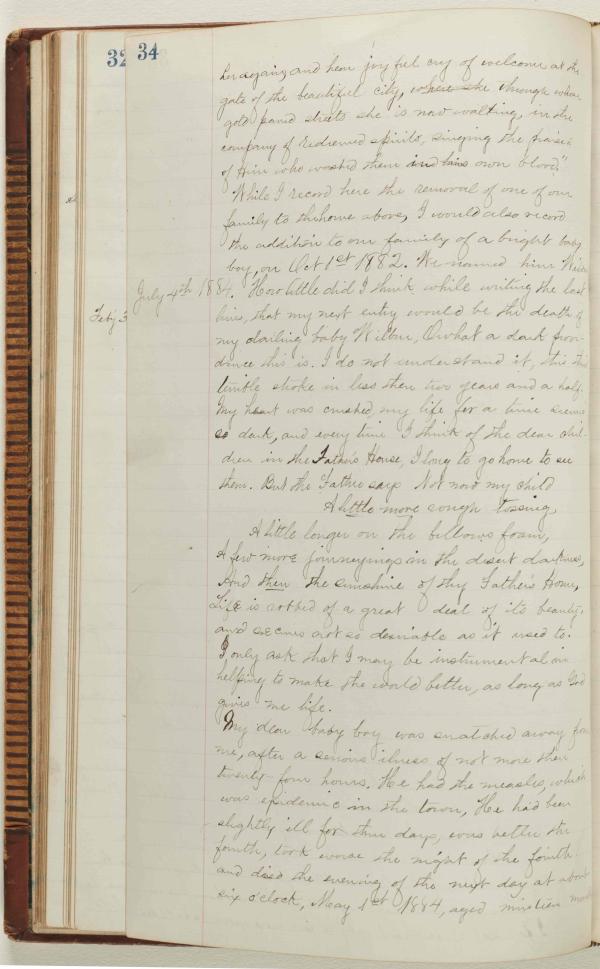 32 34
her again, and hear joyful cry of welcome at the
gate of the beautiful city, where she through whose
gold paved streets she is now walking, in the
company of redeemed spirits, singing the praise
of Him who washed them in his own blood."
While I record here the removal of one of our
family to the home above, I would also record
the addition to our family of a bright baby
boy, on Oct 1st 1882. We named him
July 4th 1884. How little did I think while writing the last
lines, that my next entry would be the death of
my darling baby Wilbur, O what a dark prov-
dence this is. I do not understand it, this
terrible stroke in less then two years and a half.
My heart was crushed, my life for a time seems
so dark, and every time I think of the dear chil-
dren in the Father's House, I long to go home to see
them. But the Father says Not now my child
A little more rough tossing,
A little longer on the billows foam,
A few more journeyings in the desert darkness,
And then the sunshine of thy Father's Home,
Life is robbed of a great deal of its beauty,
and seems not so desirable as it used to.
I only ask that I may be instrumental in
helping to make the world better, as long as God
gives me life.
My dear baby boy was snatched away from
me, after a serious illness of not more then
twenty-four hours. He had the measles, which
was epidemic in the town, He had been
slightly ill for three days, was better the
fourth, took worse the night of the fourth
and died the evening of the next day at about
six o'clock, May 1st 1884, aged nineteen